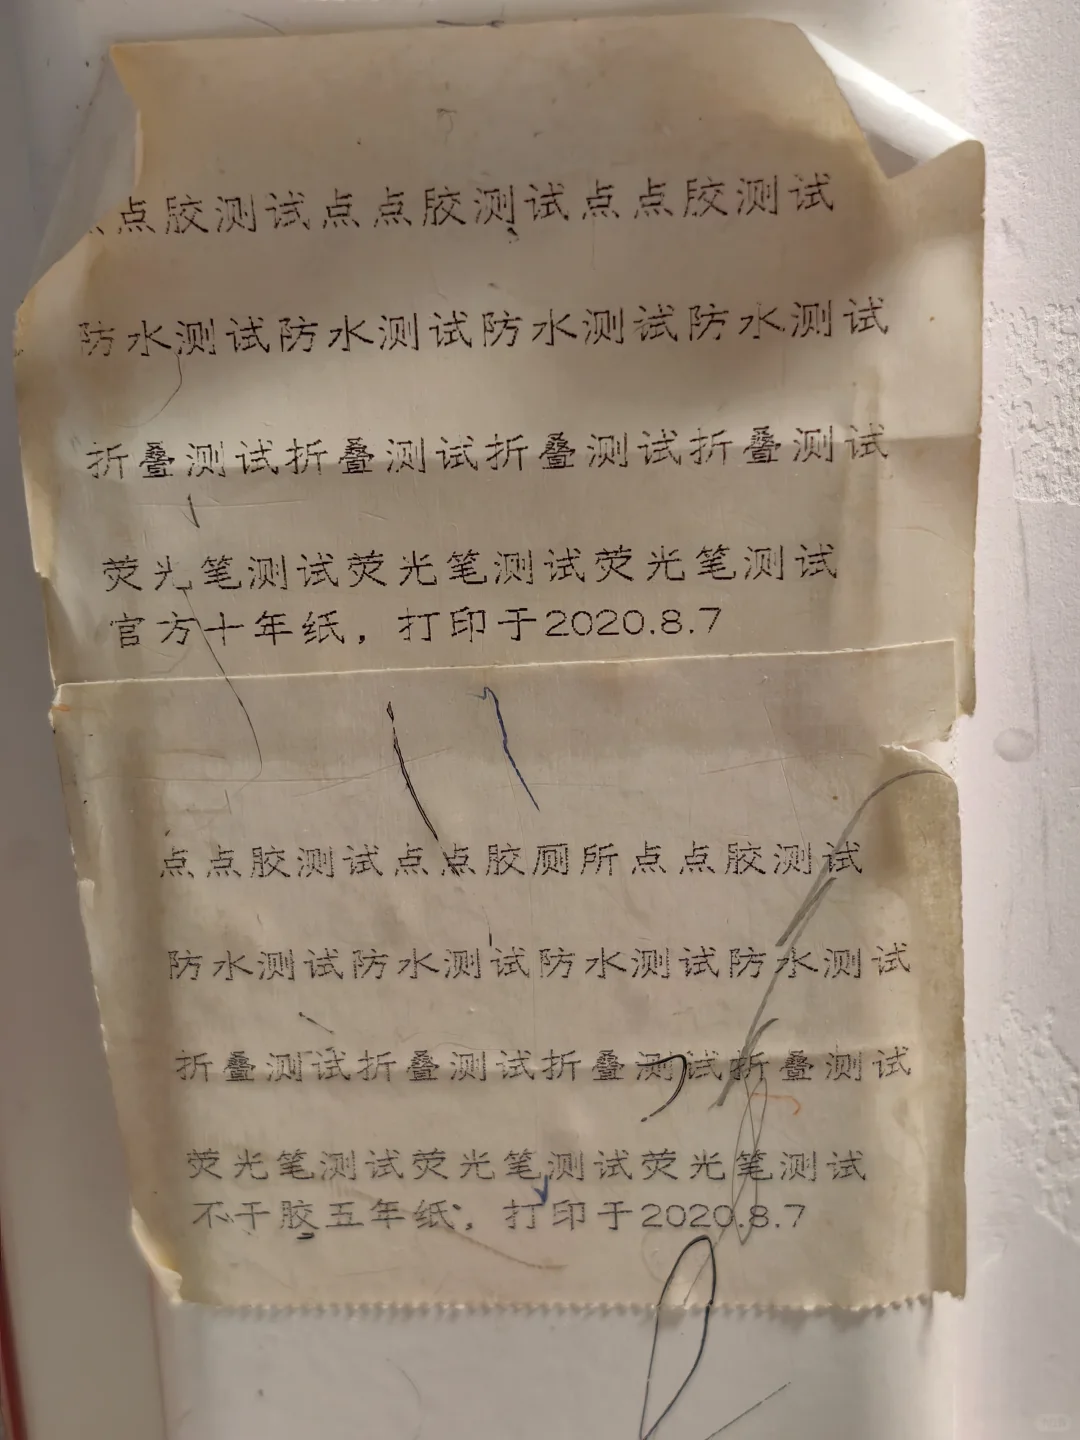 点点胶测试点点胶测试点点胶测试
防水测试防水测试防水测试防水测试
折叠测试折叠测试折叠测试折叠测试
荧光笔测试荧光笔测试荧光笔测试
官方十年纸，打印于2020.8.7
点点胶测试点点胶厕所点点胶测试
防水测试防水测试防水测试防水测试
折叠测试折叠测试折叠测试折叠测试
荧光笔测试荧光笔测试荧光笔测试
不干胶五年纸，打印于2020.8.7